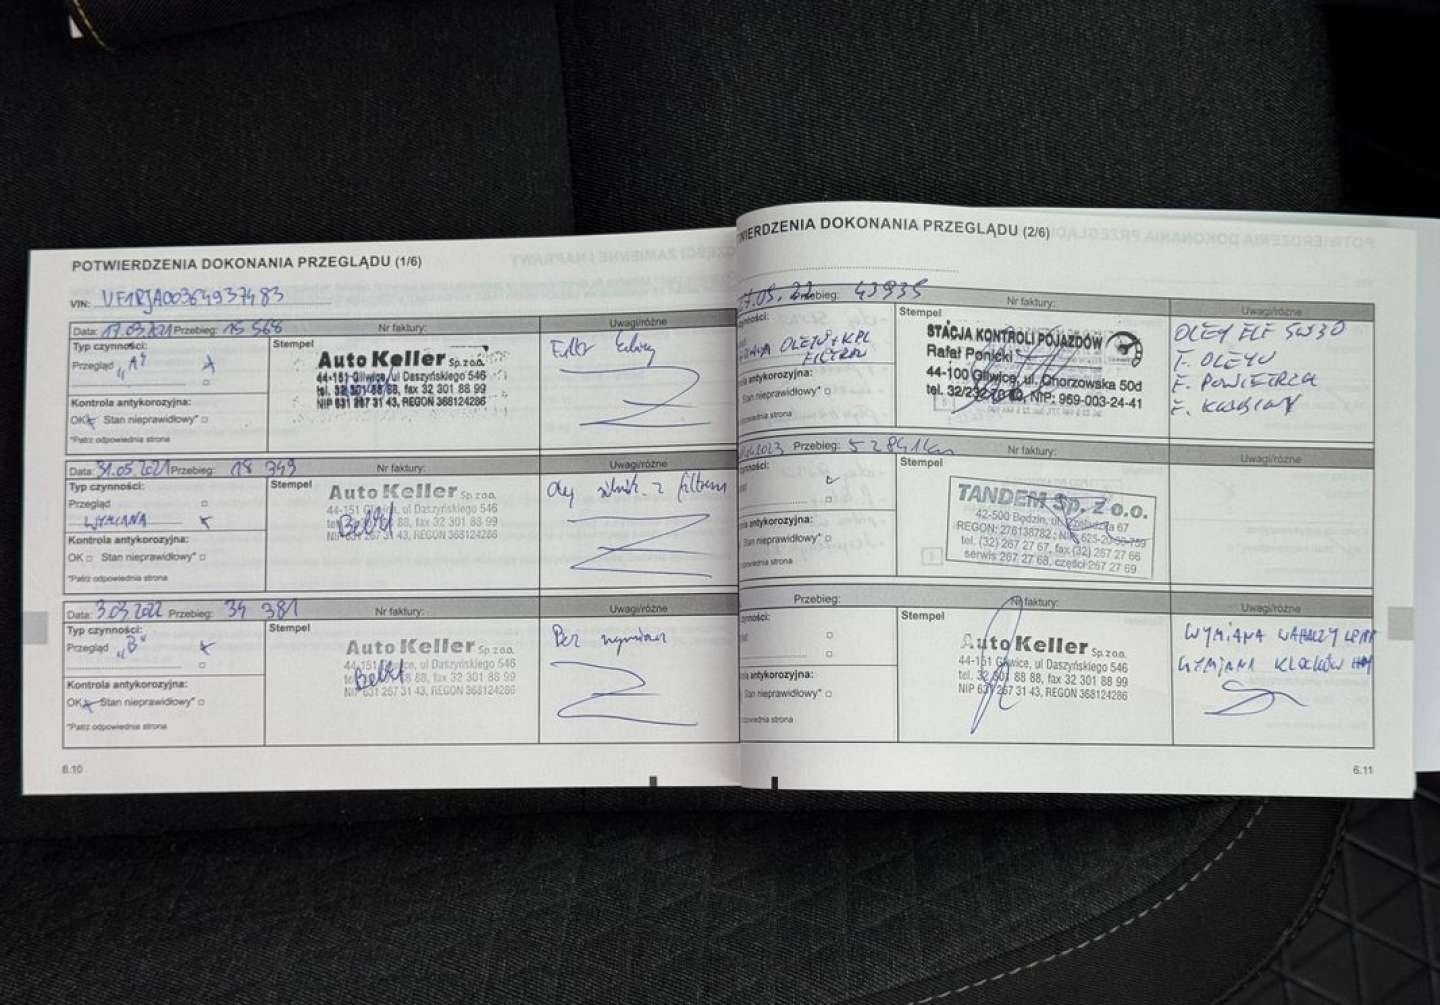 POTWIERDZENIA DOKONANIA PRZEGLĄDU (1/6)
VIN: VF1RJA00364937483
Data: 17.03.2021 Przebieg: 15 568 Nr faktury: Uwagi/różne
Typ czynności: Stempel
Przegląd "A"
Auto Keller Sp. z o.o.
44-151 Gliwice, ul Daszyńskiego 546
tel. 32 301 88 88, fax 32 301 88 99
NIP 631 267 31 43, REGON 368124286
Kontrola antykorozyjna:
OK Stan nieprawidłowy*
*Patrz odpowiednia strona
Data: 31.05.2021 Przebieg: 18 349 Nr faktury: Uwagi/różne
Typ czynności: Stempel
Przegląd
WYMIANA
Auto Keller Sp. z o.o.
44-151 Gliwice, ul Daszyńskiego 546
88, fax 32 301 88 99
267 31 43, REGON 368124286
Olej silnik. z filtrem
Kontrola antykorozyjna:
OK Stan nieprawidłowy*
*Patrz odpowiednia strona
Data: 3.03.2022 Przebieg: 34 381 Nr faktury: Uwagi/różne
Typ czynności: Stempel
Przegląd "B"
Auto Keller Sp. z o.o.
44-151 Gliwice, ul Daszyńskiego 546
88, fax 32 301 88 99
NIP 631 267 31 43, REGON 368124286
Bez wymian
Kontrola antykorozyjna:
OK Stan nieprawidłowy*
*Patrz odpowiednia strona
6.10
WIERDZENIA DOKONANIA PRZEGLĄDU (2/6)
17.05.22 Przebieg: 43935 Nr faktury: Uwagi/różne
Stempel
OLEJU + KPL
FILTRÓW
STACJA KONTROLI POJAZDÓW
Rafał Ponicki
44-100 Gliwice, ul. Chorzowska 50d
tel. 32/232 NIP: 969-003-24-41
OLEJ ELF 5W30
F. OLEJU
F. POWIETRZA
F. KABINY
antykorozyjna:
Stan nieprawidłowy*
odpowiednia strona
2023 Przebieg: 52841 km Nr faktury: Uwagi/różne
Stempel
TANDEM Sp. z o.o.
42-500 Będzin, ul. 67
REGON: 276138782; NIP 625-20-39-759
tel. (32) 267 27 67, fax (32) 267 27 66
serwis 267 27 68, części 267 27 69
antykorozyjna:
Stan nieprawidłowy*
odpowiednia strona
Przebieg: Nr faktury: Uwagi/różne
Stempel
Auto Keller Sp. z o.o.
44-151 Gliwice, ul Daszyńskiego 546
tel. 32 301 88 88, fax 32 301 88 99
NIP 631 267 31 43, REGON 368124286
WYMIANA
WYMIANA KLOCKÓW
antykorozyjna:
Stan nieprawidłowy*
odpowiednia strona
6.11